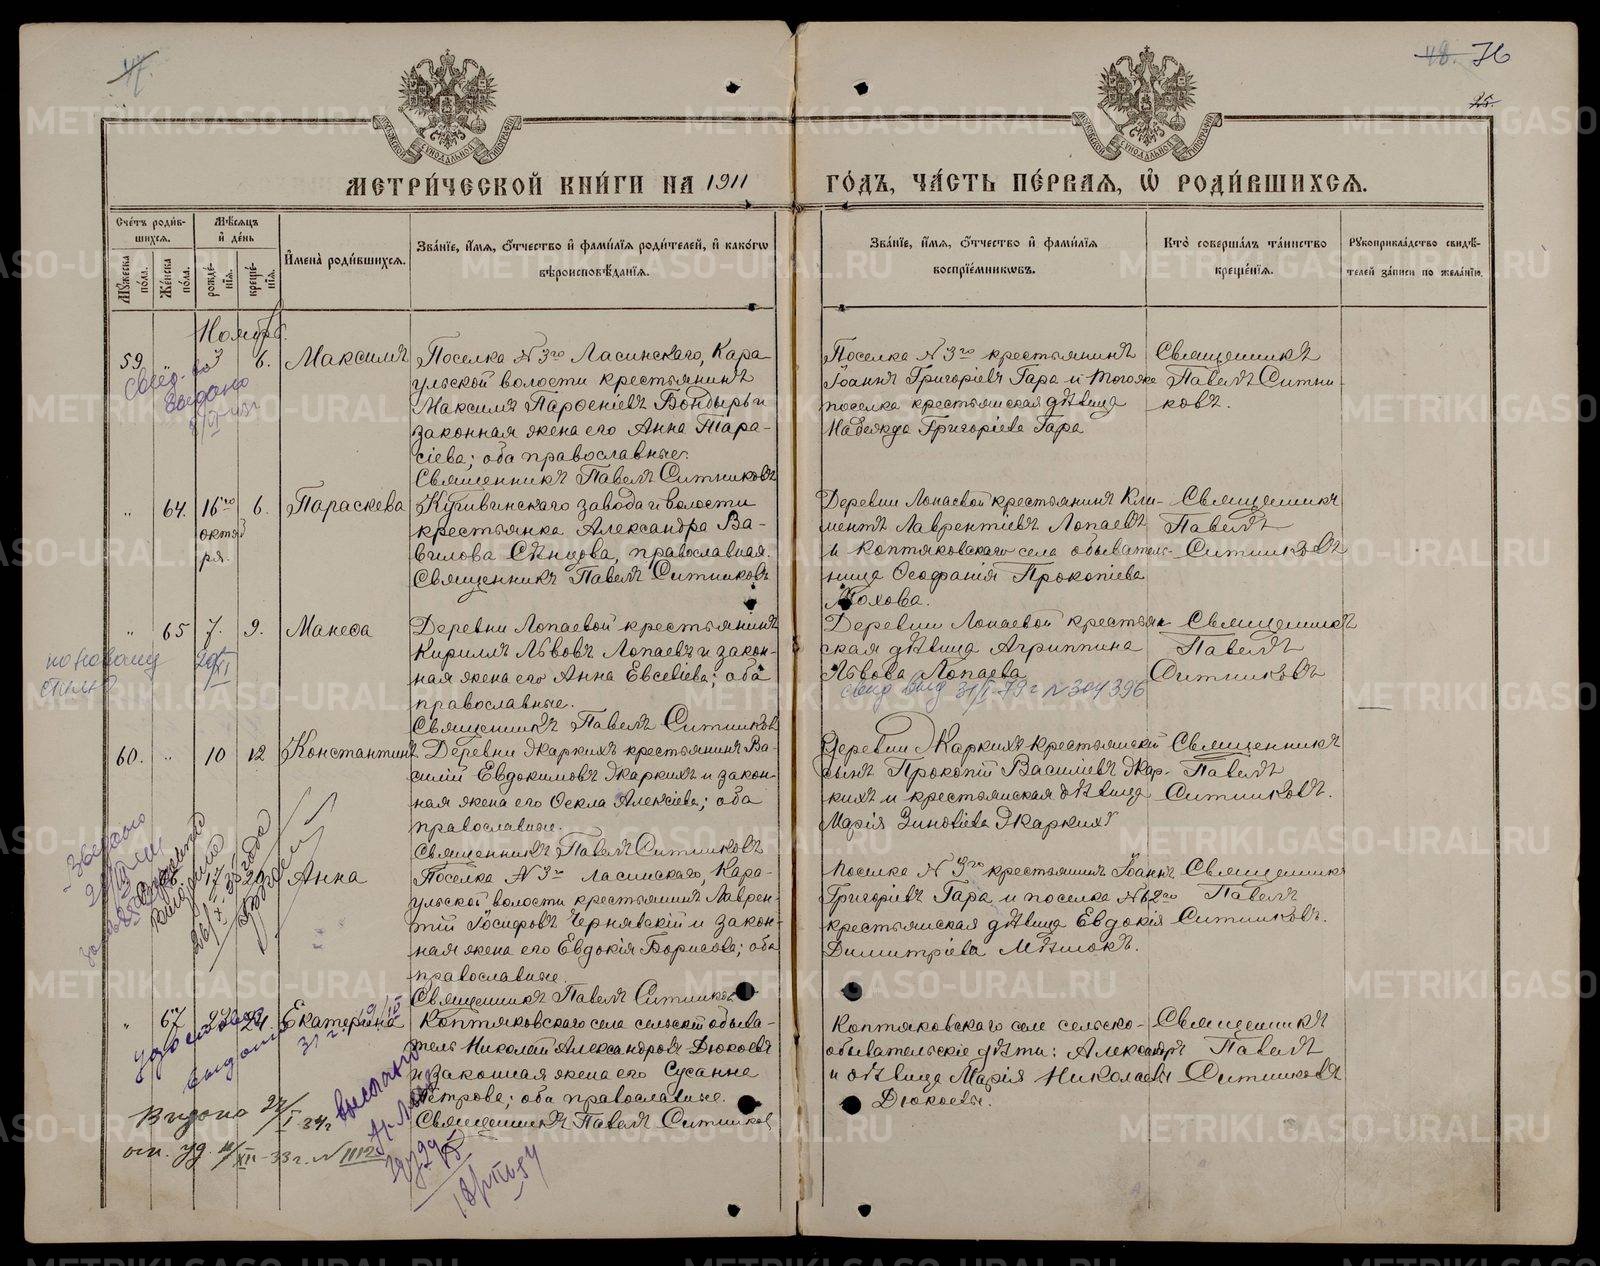 47.
48. 76
25.
МЕТРИ́ЧЕСКОЙ КНИ́ГИ НА 1911 ГО́ДЪ, ЧА́СТЬ ПЕ́РВАЯ, Ѽ РОДИ́ВШИХСЯ.
Сче́тъ роди́в-
шихся.
Мѣ́сяцъ
и҆ де́нь
Мꙋ́жеска по́ла.
Же́нска по́ла.
рожде́-
нїѧ.
креще́-
нїѧ.
И҆мена̀ роди́вшихся.
Зва́нїе, и҆́мѧ, ѻ҆́тчество и҆ фами́лїѧ роди́телей, и҆ како́гѡ
вѣроисповѣ́данїѧ.
Зва́нїе, и҆́мѧ, ѻ҆́тчество и҆ фами́лїѧ
воспрїе́мникѡвъ.
Кто̀ соверша́лъ та́инство
креще́нїѧ.
Рꙋкоприкла́дство свидѣ́-
телей за́писи по жела́нїю.
Ноябрь.
59. „ 3 6. Максимъ
Поселка №3го Ласинскаго, Кара-
ульской волости крестьянинъ
Максимъ Парѳеніевъ Бондырь и
законная жена его Анна Тара-
сіева; оба православные.
Священникъ Павелъ Ситниковъ
Поселка №3го крестьянинъ
Іоаннъ Григоріевъ Гара и тогоже
поселка крестьянская дѣвица
Надежда Григоріева Гара
Священникъ
Павелъ Ситни-
ковъ.
„ 64. 16го октяб
ря. 6. Параскева
завода и волости
крестьянка Александра Ва-
вилова Сѣнцова, православная.
Священникъ Павелъ Ситниковъ
Деревни Лопаевой крестьянинъ Кли-
ментъ Лаврентіевъ Лопаевъ
и Коптяковскаго села обыватель-
ница Ѳеофанія Прокопіева
Мохова.
Священникъ
Павелъ
Ситниковъ
„ 65 7. 9. Манеѳа
Деревни Лопаевой крестьянинъ
Кириллъ Львовъ Лопаевъ и закон-
ная жена его Анна Евсевіева; оба
православные.
Священникъ Павелъ Ситниковъ
Деревни Лопаевой крестьян-
ская дѣвица Агриппина
Львова Лопаева
Священникъ
Павелъ
Ситниковъ
по новому
стилю
20/XI
свид выд 31/I-79г №304396
60. „ 10 12 Константинъ
Деревни Жаркихъ крестьянинъ Ва-
силій Евдокимовъ Жаркихъ и закон-
ная жена его Ѳекла Алексіева; оба
православные.
Священникъ Павелъ Ситниковъ
Деревни Жаркихъ крестьянскій
сынъ Прокопій Василіевъ Жар-
кихъ и крестьянская дѣвица
Марія Зиновіева Жаркихъ
Священникъ
Павелъ
Ситниковъ.
17 20 Анна
Поселка №3го Ласинскаго, Кара-
ульской волости крестьянинъ Лаврен-
тій Іосифовъ Чернявскій и закон-
ная жена его Евдокія Борисова; оба
православные.
Священникъ Павелъ Ситников
Поселка №3го крестьянинъ Іоаннъ
Григоріевъ Гара и поселка №2го
крестьянская дѣвица Евдокія
Димитріева Мѣшокъ.
Священникъ
Павелъ
Ситниковъ.
„ 67 22 24 Екатерина
Коптяковскаго села сельскій обыва-
тель Николай Александровъ Дюковъ
и законная жена его Сусанна
Петрова; оба православные.
Священникъ Павелъ Ситников
Коптяковскаго села сельско-
обывательскіе дѣти: Александръ
и дѣвица Марія Николаевы
Дюковы.
Священникъ
Павелъ
Ситниковъ
METRIKI.GASO-URAL.RU